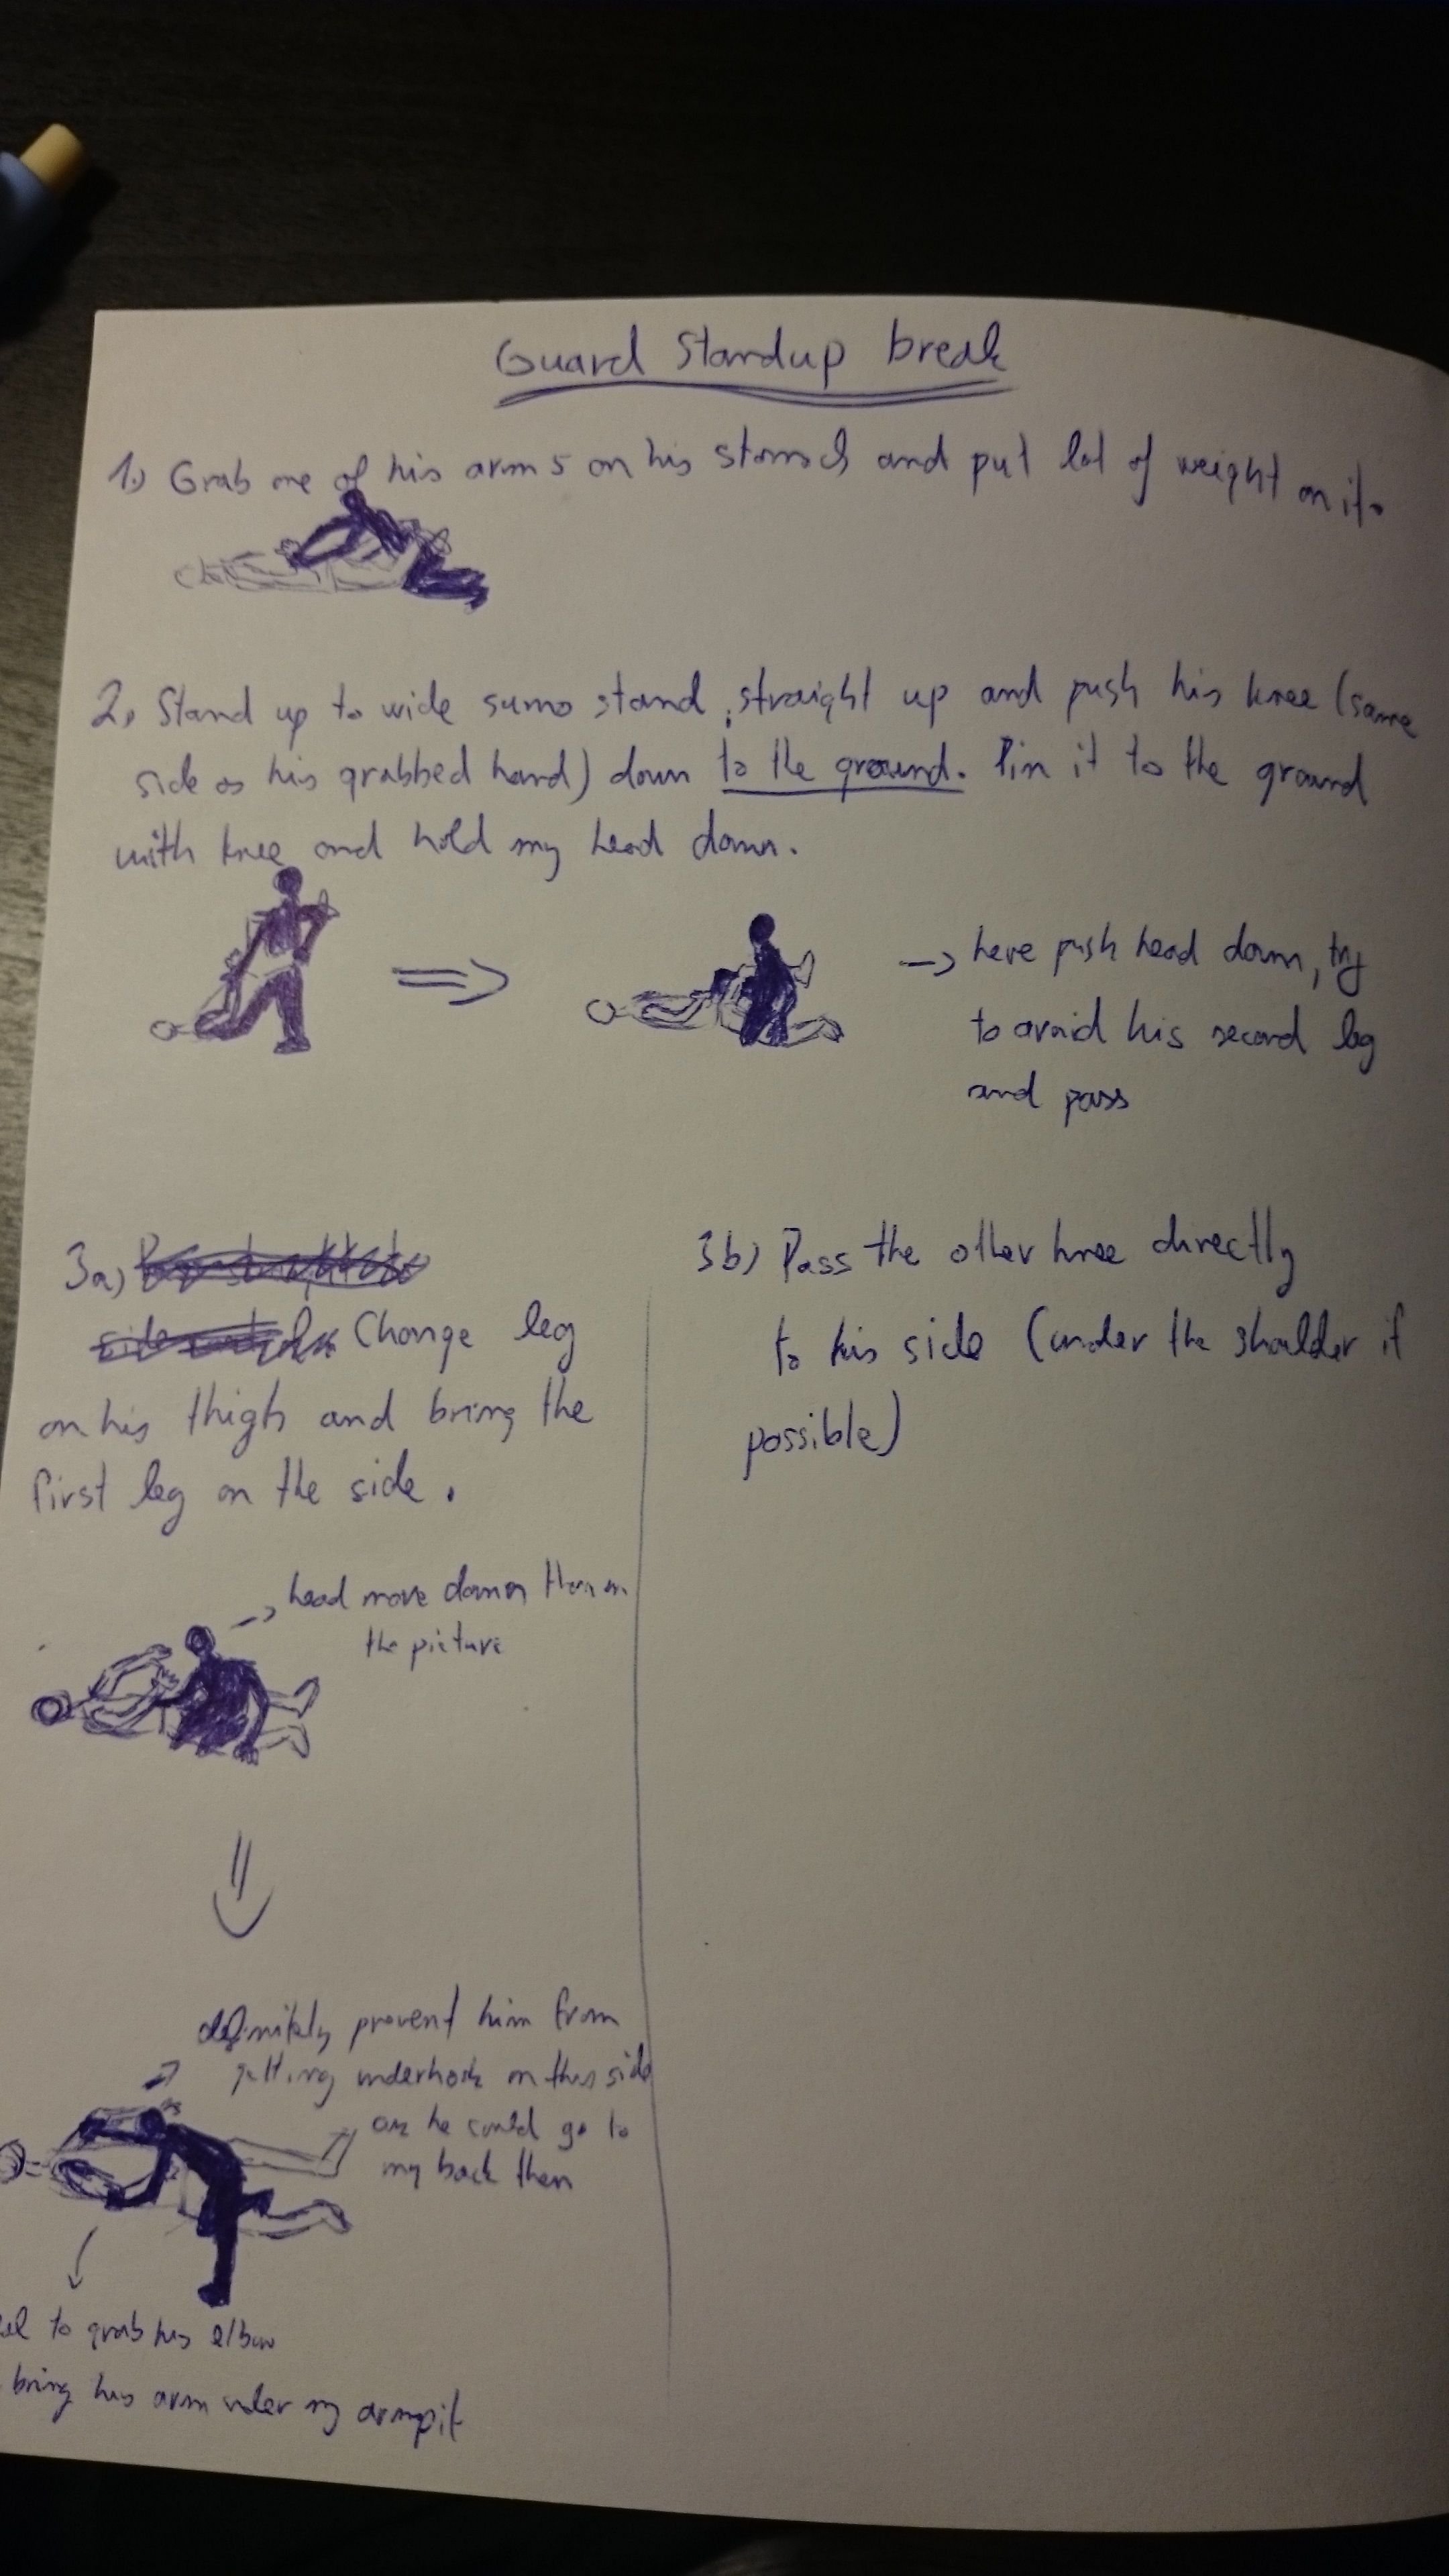 Guard Standup break
1.) Grab one of his arms on his stomach and put lot of weight on it.
2, Stand up to wide sumo stand, straight up and push his knee (same
side as his grabbed hand) down to the ground. Pin it to the ground
with knee and hold my head down.
-> here push head down, try
to avoid his second leg
and pass
3a)
Change leg
on his thigh and bring the
first leg on the side.
-> head more down than on
the picture
definitely prevent him from
getting underhook on this side
he could go to
my back then
to grab his elbow
bring his arm under my armpit
3b) Pass the other knee directly
to his side (under the shoulder if
possible)